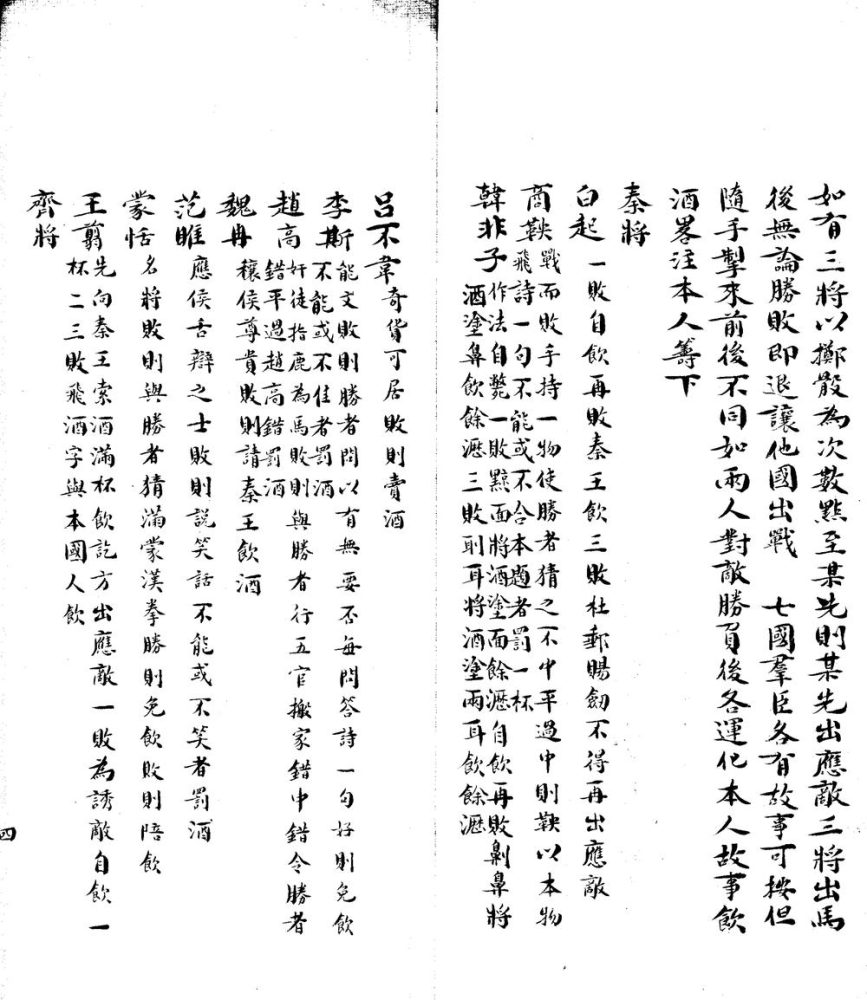 如有三將以擲骰為次數點至某先則某先出應敵三將出馬
後無論勝敗即退讓他國出戰　七國羣臣各有故事可按但
隨手掣來前後不同如兩人對敵勝負後各運化本人故事飲
酒畧注本人籌下
秦將
白起一敗自飲再敗秦王飲三敗杜郵賜劒不得再出應敵
商鞅戰而敗手持一物使勝者猜之不中平過中則鞅以本物
飛詩一句不能或不合本題者罰一杯
韓非子作法自斃一敗黥面將酒塗面餘瀝自飲再敗劓鼻將
酒塗鼻飲餘瀝三敗刵耳將酒塗兩耳飲餘瀝
呂不韋奇貨可居敗則賣酒
李斯能文敗則勝者問以有無要否每問答詩一句好則免飲
不能或不佳者罰酒
趙高奸徒指鹿為馬敗則與勝者行五官搬家錯中錯令勝者
錯平過趙高錯罰酒
魏冉穰侯尊貴敗則請秦王飲酒
范睢應侯舌辯之士敗則説笑話不能或不笑者罰酒
蒙恬名將敗則與勝者猜滿蒙漢拳勝則免飲敗則陪飲
王翦先向秦王索酒滿杯飲訖方出應敵一敗為誘敵自飲一
杯二三敗飛酒字與本國人飲
齊將
四